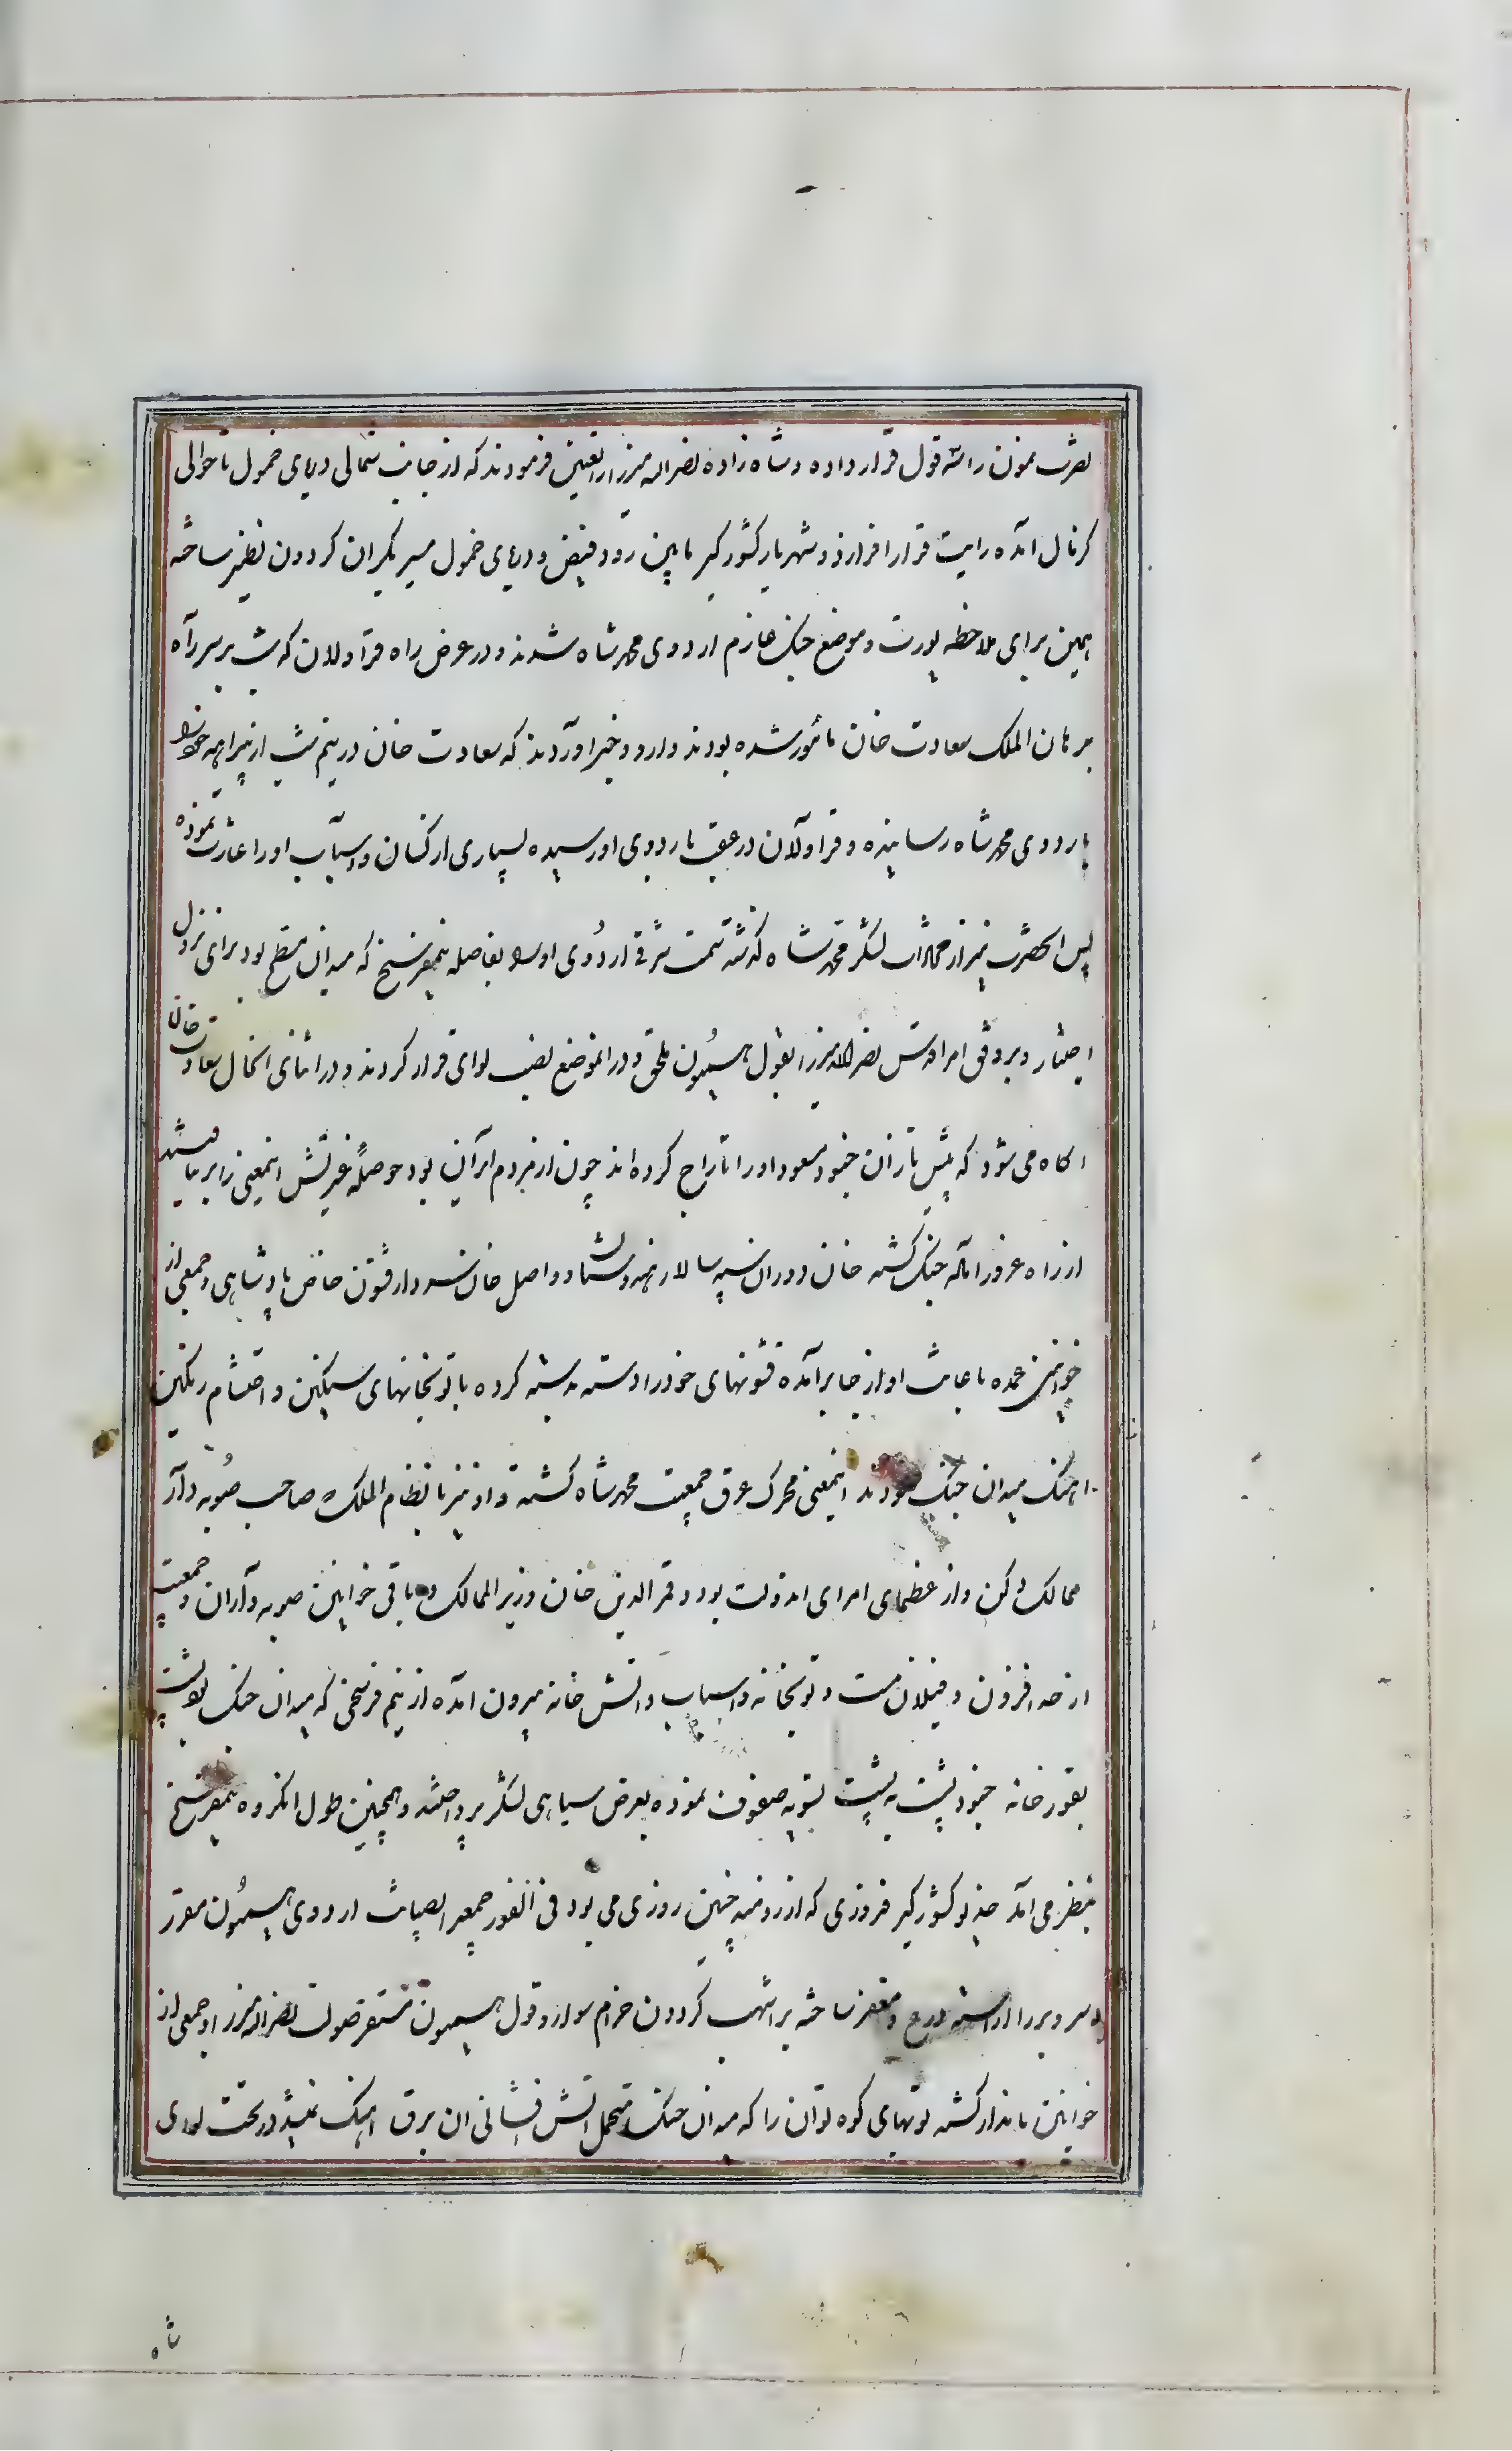 نصرت نمون را سه قول قرار داده و شاه زاده نصراله میرزا را تعیین فرمودند که از جانب شمالی دریای خمول تا حوالی
کرنال آمده رایت قرار افرازد و شهریار کشورگیر مابین رود فیض و دریای خمول مسیر یکران کردون نظیر ساخته
همین برای ملاحظه یورت و موضع جنک عازم اردوی محمد شاه شدند و در عرض راه قراولان که شب بر سر راه
برهان الملک سعادت خان مأمور شده بودند وارد و خبر آوردند که سعادت خان در نیم شب از بیراهه خود را
باردوی محمد شاه رسانیده و قراولان در عقب باردوی او رسیده بسیاری از کسان و اسباب او را غارت نموده
پس آنحضرت نیز از محاذات لشکر محمد شاه گذشته سمت شرقی اردوی او را بفاصله نیمفرسخ که میدان مسطح بود برای نزول
اختیار و بر وفق امر اقدس نصراله میرزا بقول همیون ملحق و در انموضع نصب لوای قرار کردند و در اثنای انحال سعادت خان
اکاه می شود که پیش تازان جنود مسعود او را تاراج کرده اند چون از مردم ایران بود حوصلهٔ غیرتش اینمعنی را بر نتابیده
از راه غرور آماده جنک کشته خان دوران سپه سالار هندوستان و واصل خان سردار قشون خاص پادشاهی و جمعی از
خوانین عمده باعانت او از جا برآمده قشونهای خود را دسته بدسته کرده با توپخانهای سنکین و احتشام رنکین
اهنک میدان جنک نمودند اینمعنی محرک عرق حمیت محمد شاه کشته و او نیز با نظام الملک صاحب صوبه دار
ممالک دکن و از عظمای امرای اندولت بود و قمر الدین خان وزیر الممالک و باقی خوانین صوبه داران و جمعیت
از حد افزون و فیلان مست و توپخانه و اسباب و اتش خانه بیرون آمده از نیم فرسخی که میدان جنک بود پشت
بقورخانه جنود پشت به پشت تسویه صفوف نموده بعرض سیاهی لشکر پرداختند و همچنین طول انکروه نیمفرسخ
بنظر می آمد خدیو کشورگیر فروزی که آرزومند چنین روزی می بود فی الفور جمعی اردوی همیون مقرر
و سر و بر را آراسته درع و مغفر ساخته بر اشهب کردون خرام سوار و قول همیون مستقر صولت نصراله میرزا و جمعی از
خوانین نامدار کشته توپهای کوه توان را که میدان جنک متحمل آتش افشانی آن برق اهنک نمیشد در تحت لوای
شاه